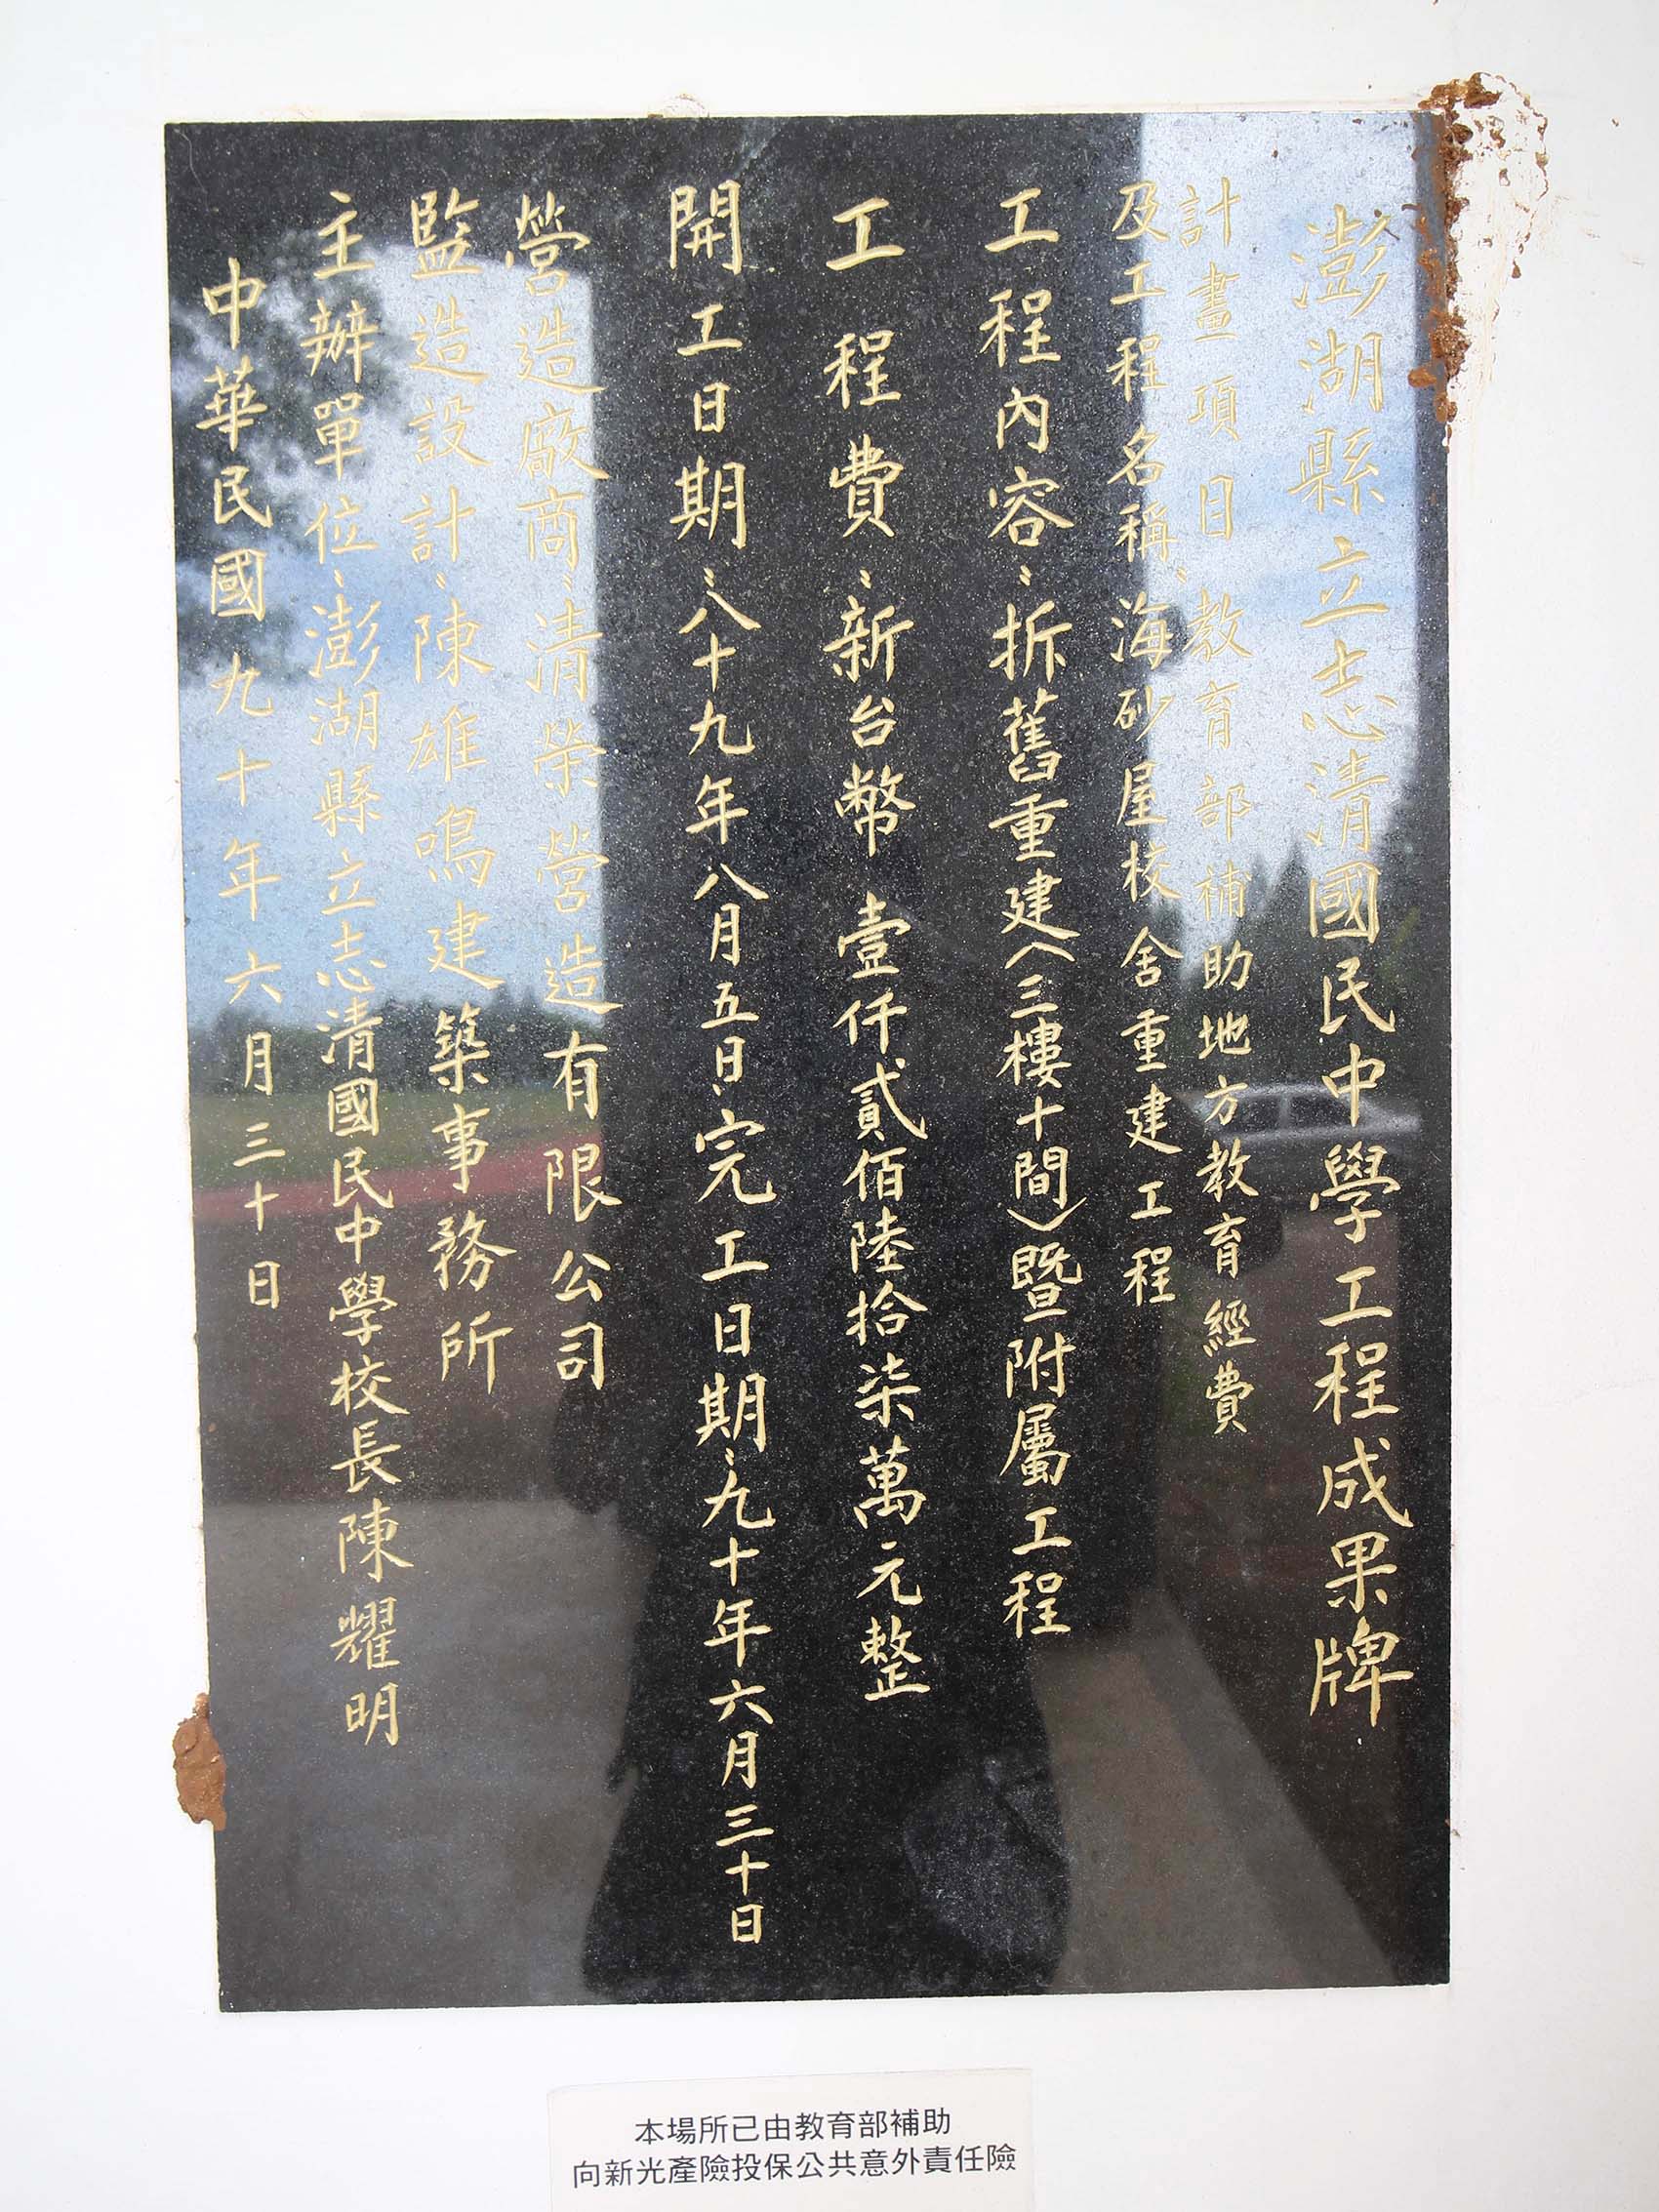 澎湖縣立志清國民中學工程成果牌
計畫項目教育部補助地方教育經費
及工程名稱：海砂屋校舍重建工程
工程內容：拆舊重建（三樓十間）暨附屬工程
工程費：新台幣壹仟貳佰陸拾柒萬元整
開工日期：八十九年八月五日：完工日期：九十年六月三十日
營造廠商：清榮營造有限公司
監造設計：陳雄鳴建築事務所
主辦單位：澎湖縣立志清國民中學校長陳耀明
中華民國九十年六月三十日
本場所已由教育部補助
向新光產險投保公共意外責任險